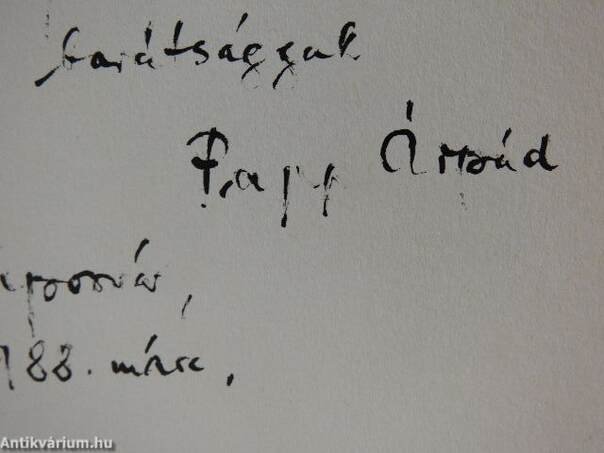 barátsággal
Papp Árpád
aposvár,
988. márc.
Antikvárium.hu